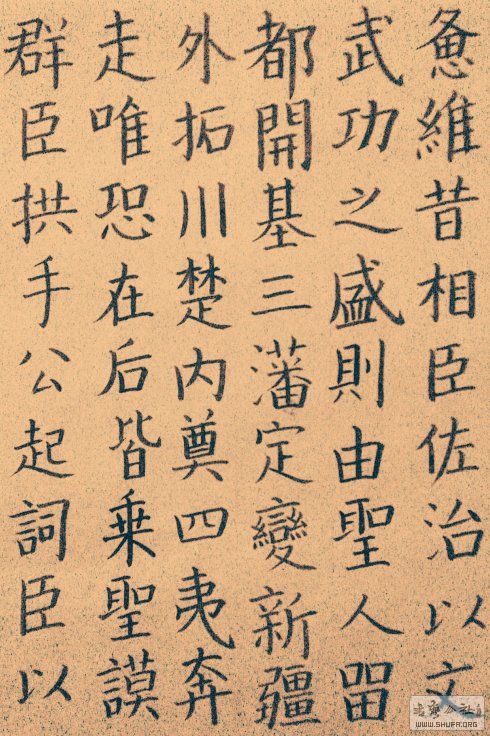 維昔相臣佐治以文
武功之盛則由聖人留
都開基三瀋定變新疆
外拓川楚内奠四夷奔
走唯恐在后皆乗聖謨
群臣拱手公起詞臣以
WWW.SHUFA.ORG